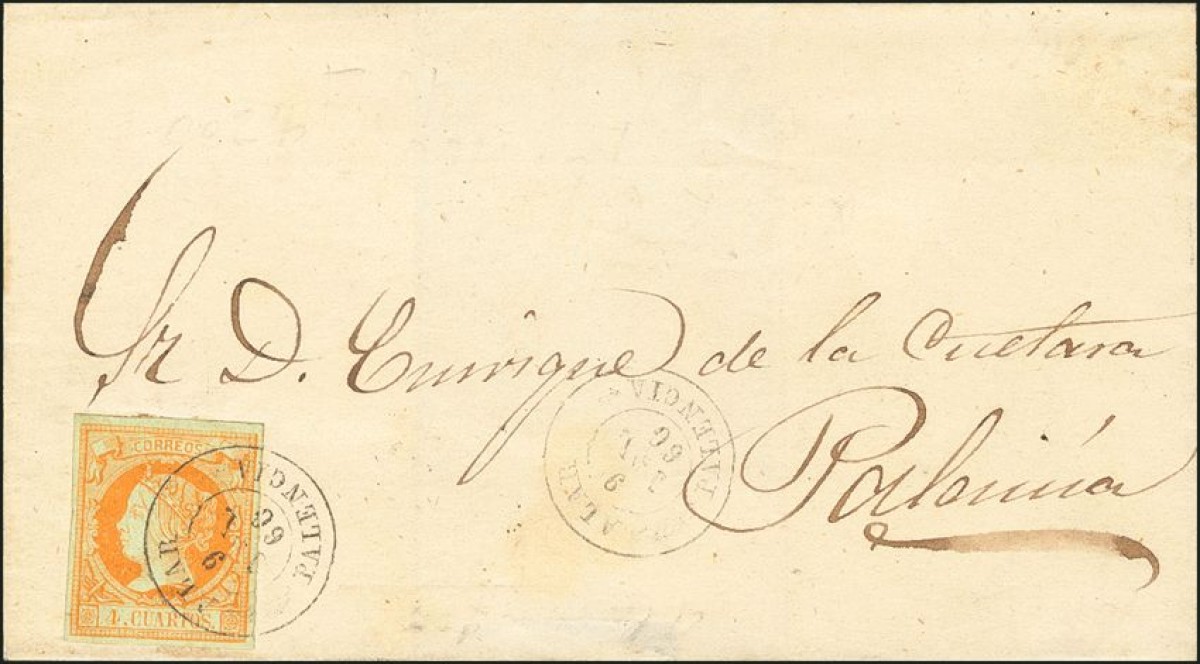 Sr D. Enrique de la Cuetara
Palencia
CORREOS
4 CUARTOS.
PALENCIA
LAR
6
60
PALENCIA
ALAR
6 JUL
60